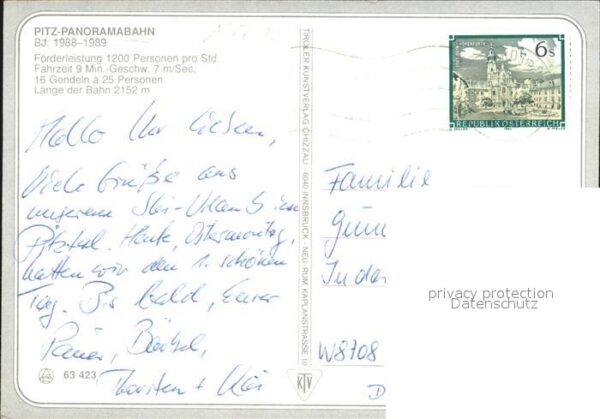 PITZ-PANORAMABAHN
BJ: 1988-1989
Förderleistung 1200 Personen pro Std.
Fahrzeit 9 Min.-Geschw. 7 m/Sec.
16 Gondeln à 25 Personen
Länge der Bahn 2152 m
Hallo Ihr Lieben,
Viele Grüße aus
unserem Ski-Urlaub im
Pitztal. Heute, Ostermontag,
hatten wir den 1. schönen
Tag. Bis bald, Eure
Rainer, Bärbel,
Thorsten + Kai
63 423
TIROLER KUNSTVERLAG CHIZZALI · 6040 INNSBRUCK - NEU RUM, KAPLANSTRASSE 10
KTV
6s
REPUBLIK ÖSTERREICH
Familie
Gün
In da
W8708
D
privacy protection
Datenschutz